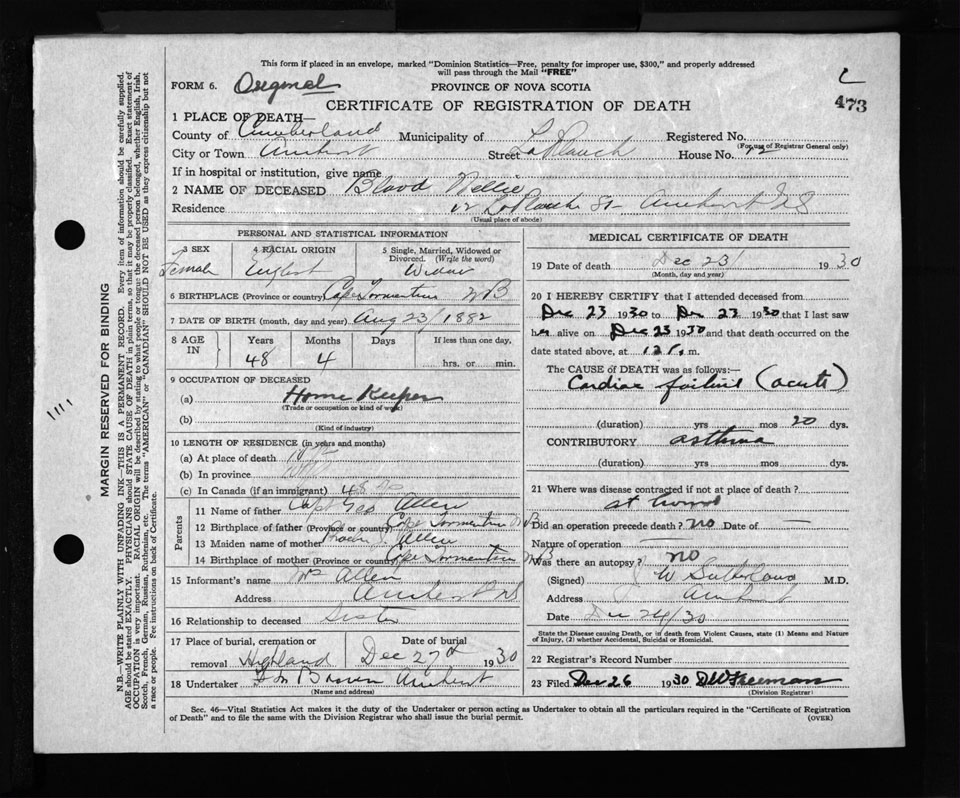 This form if placed in an envelope, marked "Dominion Statistics—Free, penalty for improper use, $300," and properly addressed
will pass through the Mail "FREE"
FORM 6. Original
PROVINCE OF NOVA SCOTIA
473
CERTIFICATE OF REGISTRATION OF DEATH
1 PLACE OF DEATH—
County of Cumberland Municipality of Registered No.
(For use of Registrar General only)
City or Town Amherst Street LaPlanch House No. 12
If in hospital or institution, give name
2 NAME OF DECEASED Blood Nellie
Residence 12 LaPlanch St Amherst NS
(Usual place of abode)
PERSONAL AND STATISTICAL INFORMATION
3 SEX 4 RACIAL ORIGIN 5 Single, Married, Widowed or Divorced. (Write the word)
Female English Widow
6 BIRTHPLACE (Province or country) Cape Tormentine NB
7 DATE OF BIRTH (month, day and year) Aug 23/1882
8 AGE IN Years Months Days If less than one day,
48 4 hrs. or min.
9 OCCUPATION OF DECEASED
(a) Home Keeper
(Trade or occupation or kind of work)
(b)
(Kind of industry)
10 LENGTH OF RESIDENCE (in years and months)
(a) At place of death
(b) In province
(c) In Canada (if an immigrant) 48
Parents
11 Name of father Capt Geo Allen
12 Birthplace of father (Province or country) Cape Tormentine NB
13 Maiden name of mother Allen
14 Birthplace of mother (Province or country) Cape Tormentine NB
15 Informant's name Mrs Allen
Address Amherst NS
16 Relationship to deceased Sister
17 Place of burial, cremation or removal Highland
Date of burial Dec 27 1930
18 Undertaker Brown Amherst
(Name and address)
MEDICAL CERTIFICATE OF DEATH
19 Date of death Dec 23/ 1930
(Month, day and year)
20 I HEREBY CERTIFY that I attended deceased from
Dec 23 1930 to Dec 23 1930 that I last saw
her alive on Dec 23 1930 and that death occurred on
date stated above, at m.
The CAUSE of DEATH was as follows:—
Cardiac failure (acute)
(duration) yrs mos 20 dys.
CONTRIBUTORY asthma
(duration) yrs mos dys.
21 Where was disease contracted if not at place of death?
at home
Did an operation precede death? no Date of —
Nature of operation —
Was there an autopsy? no
(Signed) W Sutherland M.D.
Address Amherst
Date Dec 24/30
State the Disease causing Death, or in death from Violent Causes, state (1) Means and Nature
of Injury, (2) whether Accidental, Suicidal or Homicidal.
22 Registrar's Record Number
23 Filed Dec 26 1930 Freeman
(Division Registrar)
Sec. 46—Vital Statistics Act makes it the duty of the Undertaker or person acting as Undertaker to obtain all the particulars required in the "Certificate of Registration
of Death" and to file the same with the Division Registrar who shall issue the burial permit. (OVER)
MARGIN RESERVED FOR BINDING
N.B.—WRITE PLAINLY WITH UNFADING INK—THIS IS A PERMANENT RECORD. Every item of information should be carefully supplied.
AGE should be stated EXACTLY. PHYSICIANS should STATE CAUSE OF DEATH in plain terms, so that it may be properly classified. Exact statement of
OCCUPATION is very important. RACIAL ORIGIN will be described by stating to what people or tongue the deceased person belonged, whether English, Irish,
Scotch, French, German, Russian, Ruthenian, etc. The terms "AMERICAN" or "CANADIAN" SHOULD NOT BE USED as they express citizenship but not
a race or people. Fee instructions on back of Certificate.